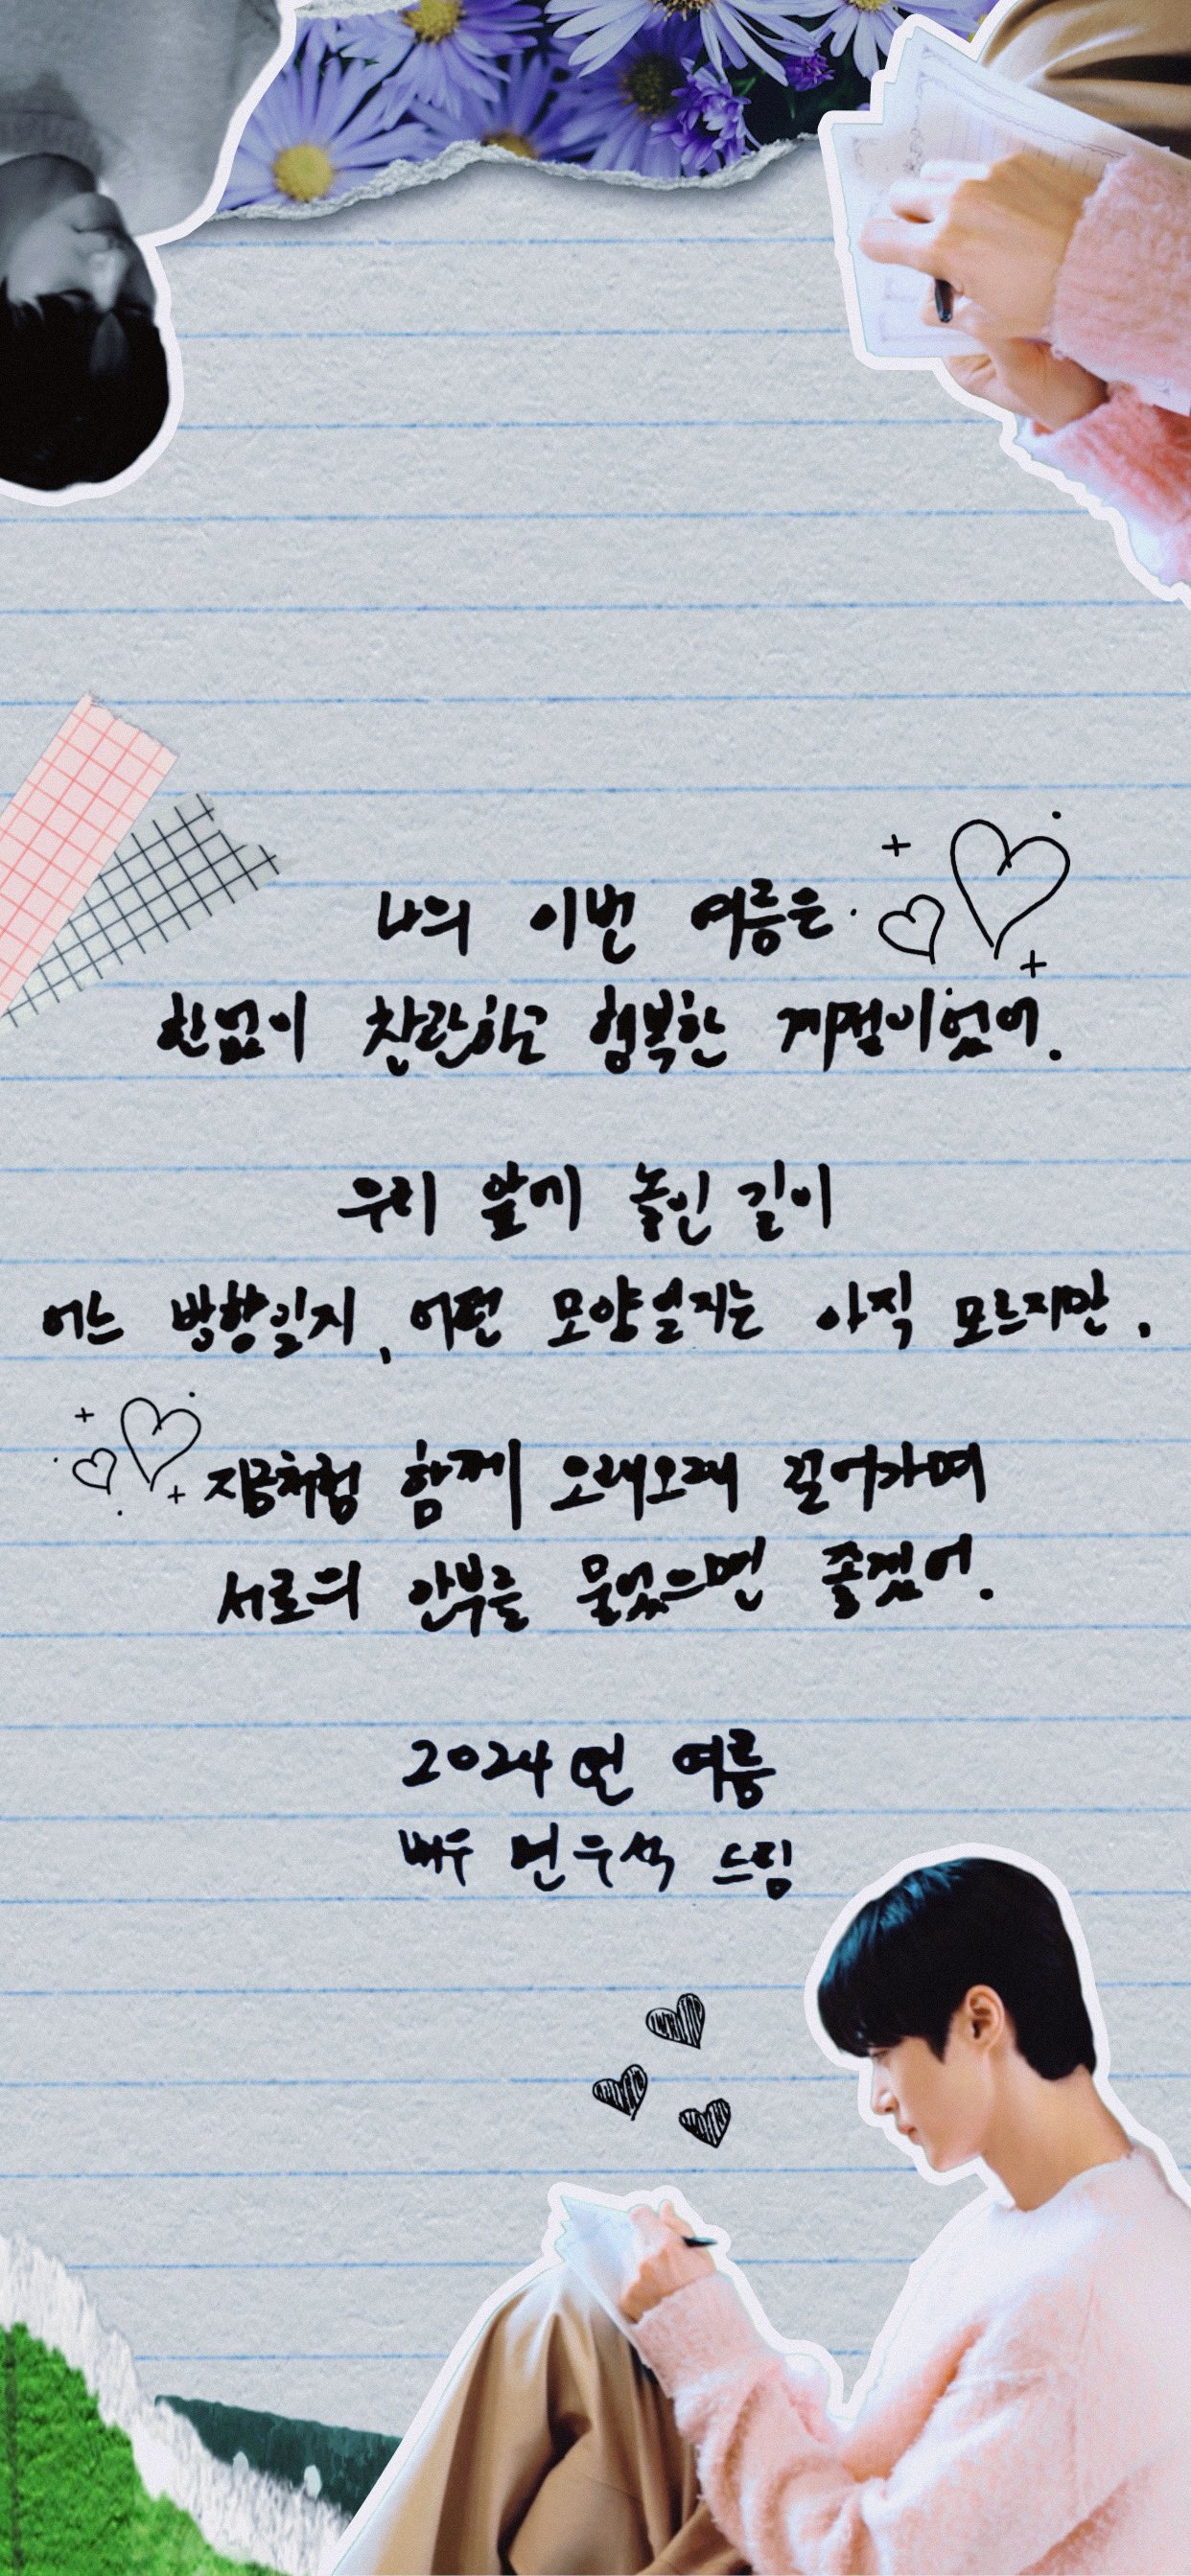 나의 이번 여름은
한없이 찬란하고 행복한 계절이었어.
우리 앞에 놓인 길이
어느 방향일지, 어떤 모양일지는 아직 모르지만,
지금처럼 함께 오래오래 걸어가며
서로의 안부를 물었으면 좋겠어.
2024년 여름
배우 변우석 드림